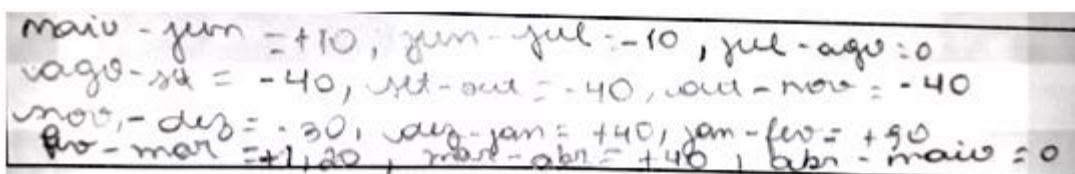 maio - jun = +10, jun - jul = -10, jul - ago = 0
ago - set = -40, set - out = -40, out - nov = -40
nov, - dez = -30, dez - jan = +40, jan - fev = +90
fev - mar = +1,20, mar - abr = +40, abr - maio = 0